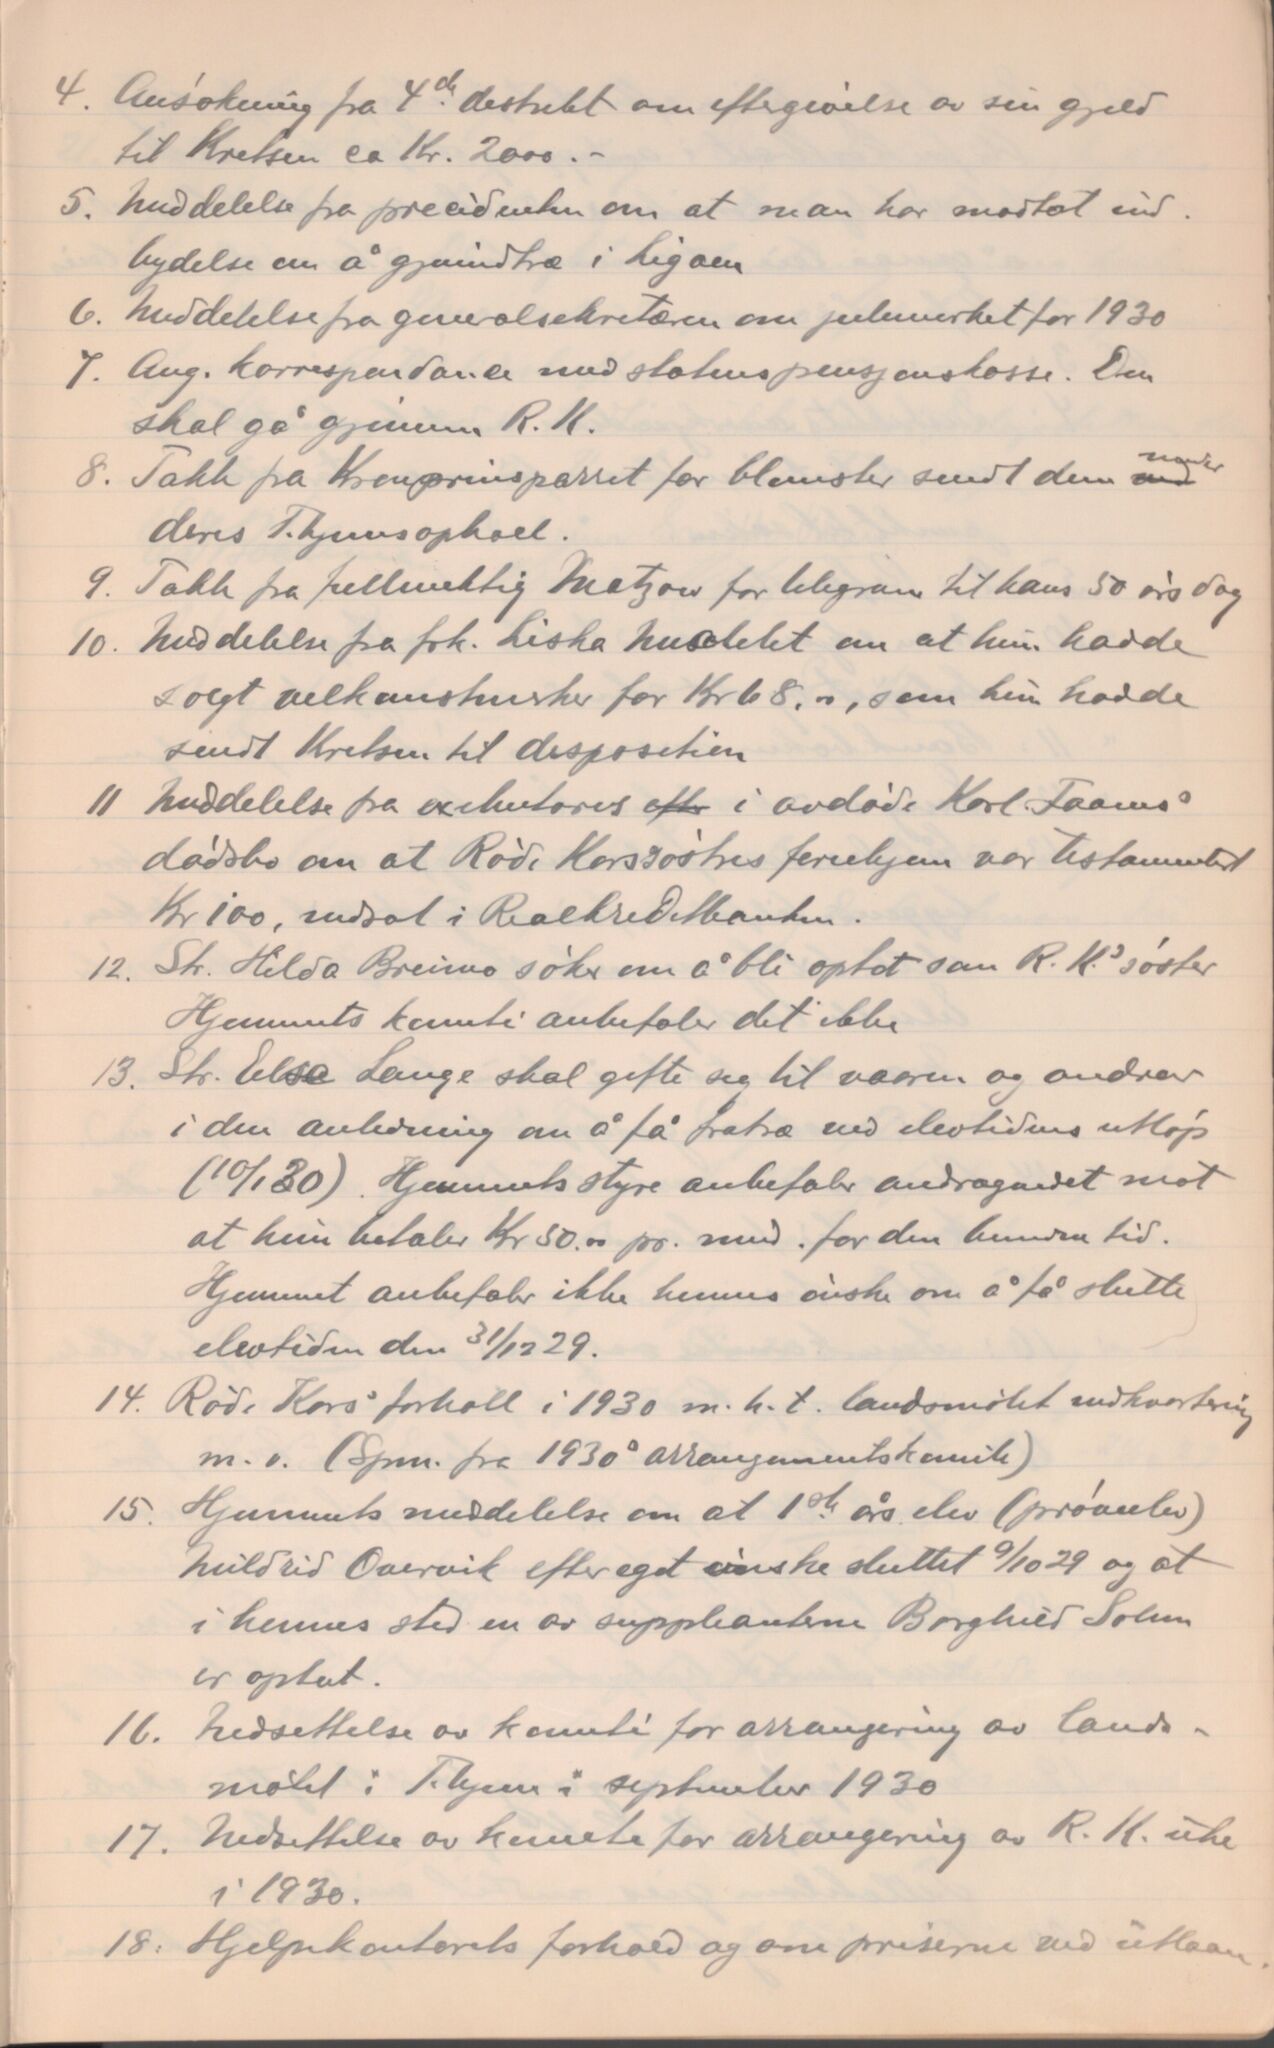 4. Ansökning fra 4de destrikt om eftergivelse av sin gjeld
til Kretsen ca Kr. 2000.-
5. Meddelelse fra precidenten om at man har modtat ind-
bydelse om å gjenindtræ i Ligaen
6. Meddelelse fra generalsekretæren om julemerket for 1930
7. Ang. korrespondance med statens pensjonskasse. Den
skal gå gjennem R.K.
8. Takk fra Kronprinsparret for blomster sendt dem under
deres T.hjemsophold.
9. Takk fra fullmektig Matzow for telegram til hans 50 års dag
10. Meddelelse fra frk. Liska om at hun hadde
solgt velkomstmerker for Kr 68.00, som hun hadde
sendt Kretsen til desposition
11 Meddelelse fra exekutores efter i avdøde Karl Faanes'
dødsbo om at Røde Korssøstres feriehjem var testamentert
Kr 100, indsat i Realkreditbanken.
12. Str. Hilda Breimo søker om å bli optat som R.K.s søster
Hjemmets komite anbefaler det ikke
13. Str. Else Lange skal gifte seg til vaaren og andrar
i den anledning om å få fratræ ved elevtidens utløp
(10/1 30). Hjemmets styre anbefaler andragendet mot
at hun betaler Kr 50.00 pr. mnd. for den bundne tid.
Hjemmet anbefaler ikke hennes ønske om å få slutte
elevtiden den 31/12 29.
14. Røde Kors' forhold i 1930 m.h.t. landsmøtet indkvartering
m.v. (Spm. fra 1930s arrangementskomite)
15. Hjemmets meddelelse om at 1ste års elev (prøveelev)
Mildrid Overvik efter eget ønske sluttet 9/10 29 og at
i hennes sted en av suppleantene Borghild Solem
er optat.
16. Nedsettelse av komite for arrangering av lands-
møtet i T.hjem i september 1930
17. Nedsettelse av komite for arrangering av R.K. uke
i 1930.
18. Hjelpekontorets forhold og om priserne ved utlaan.